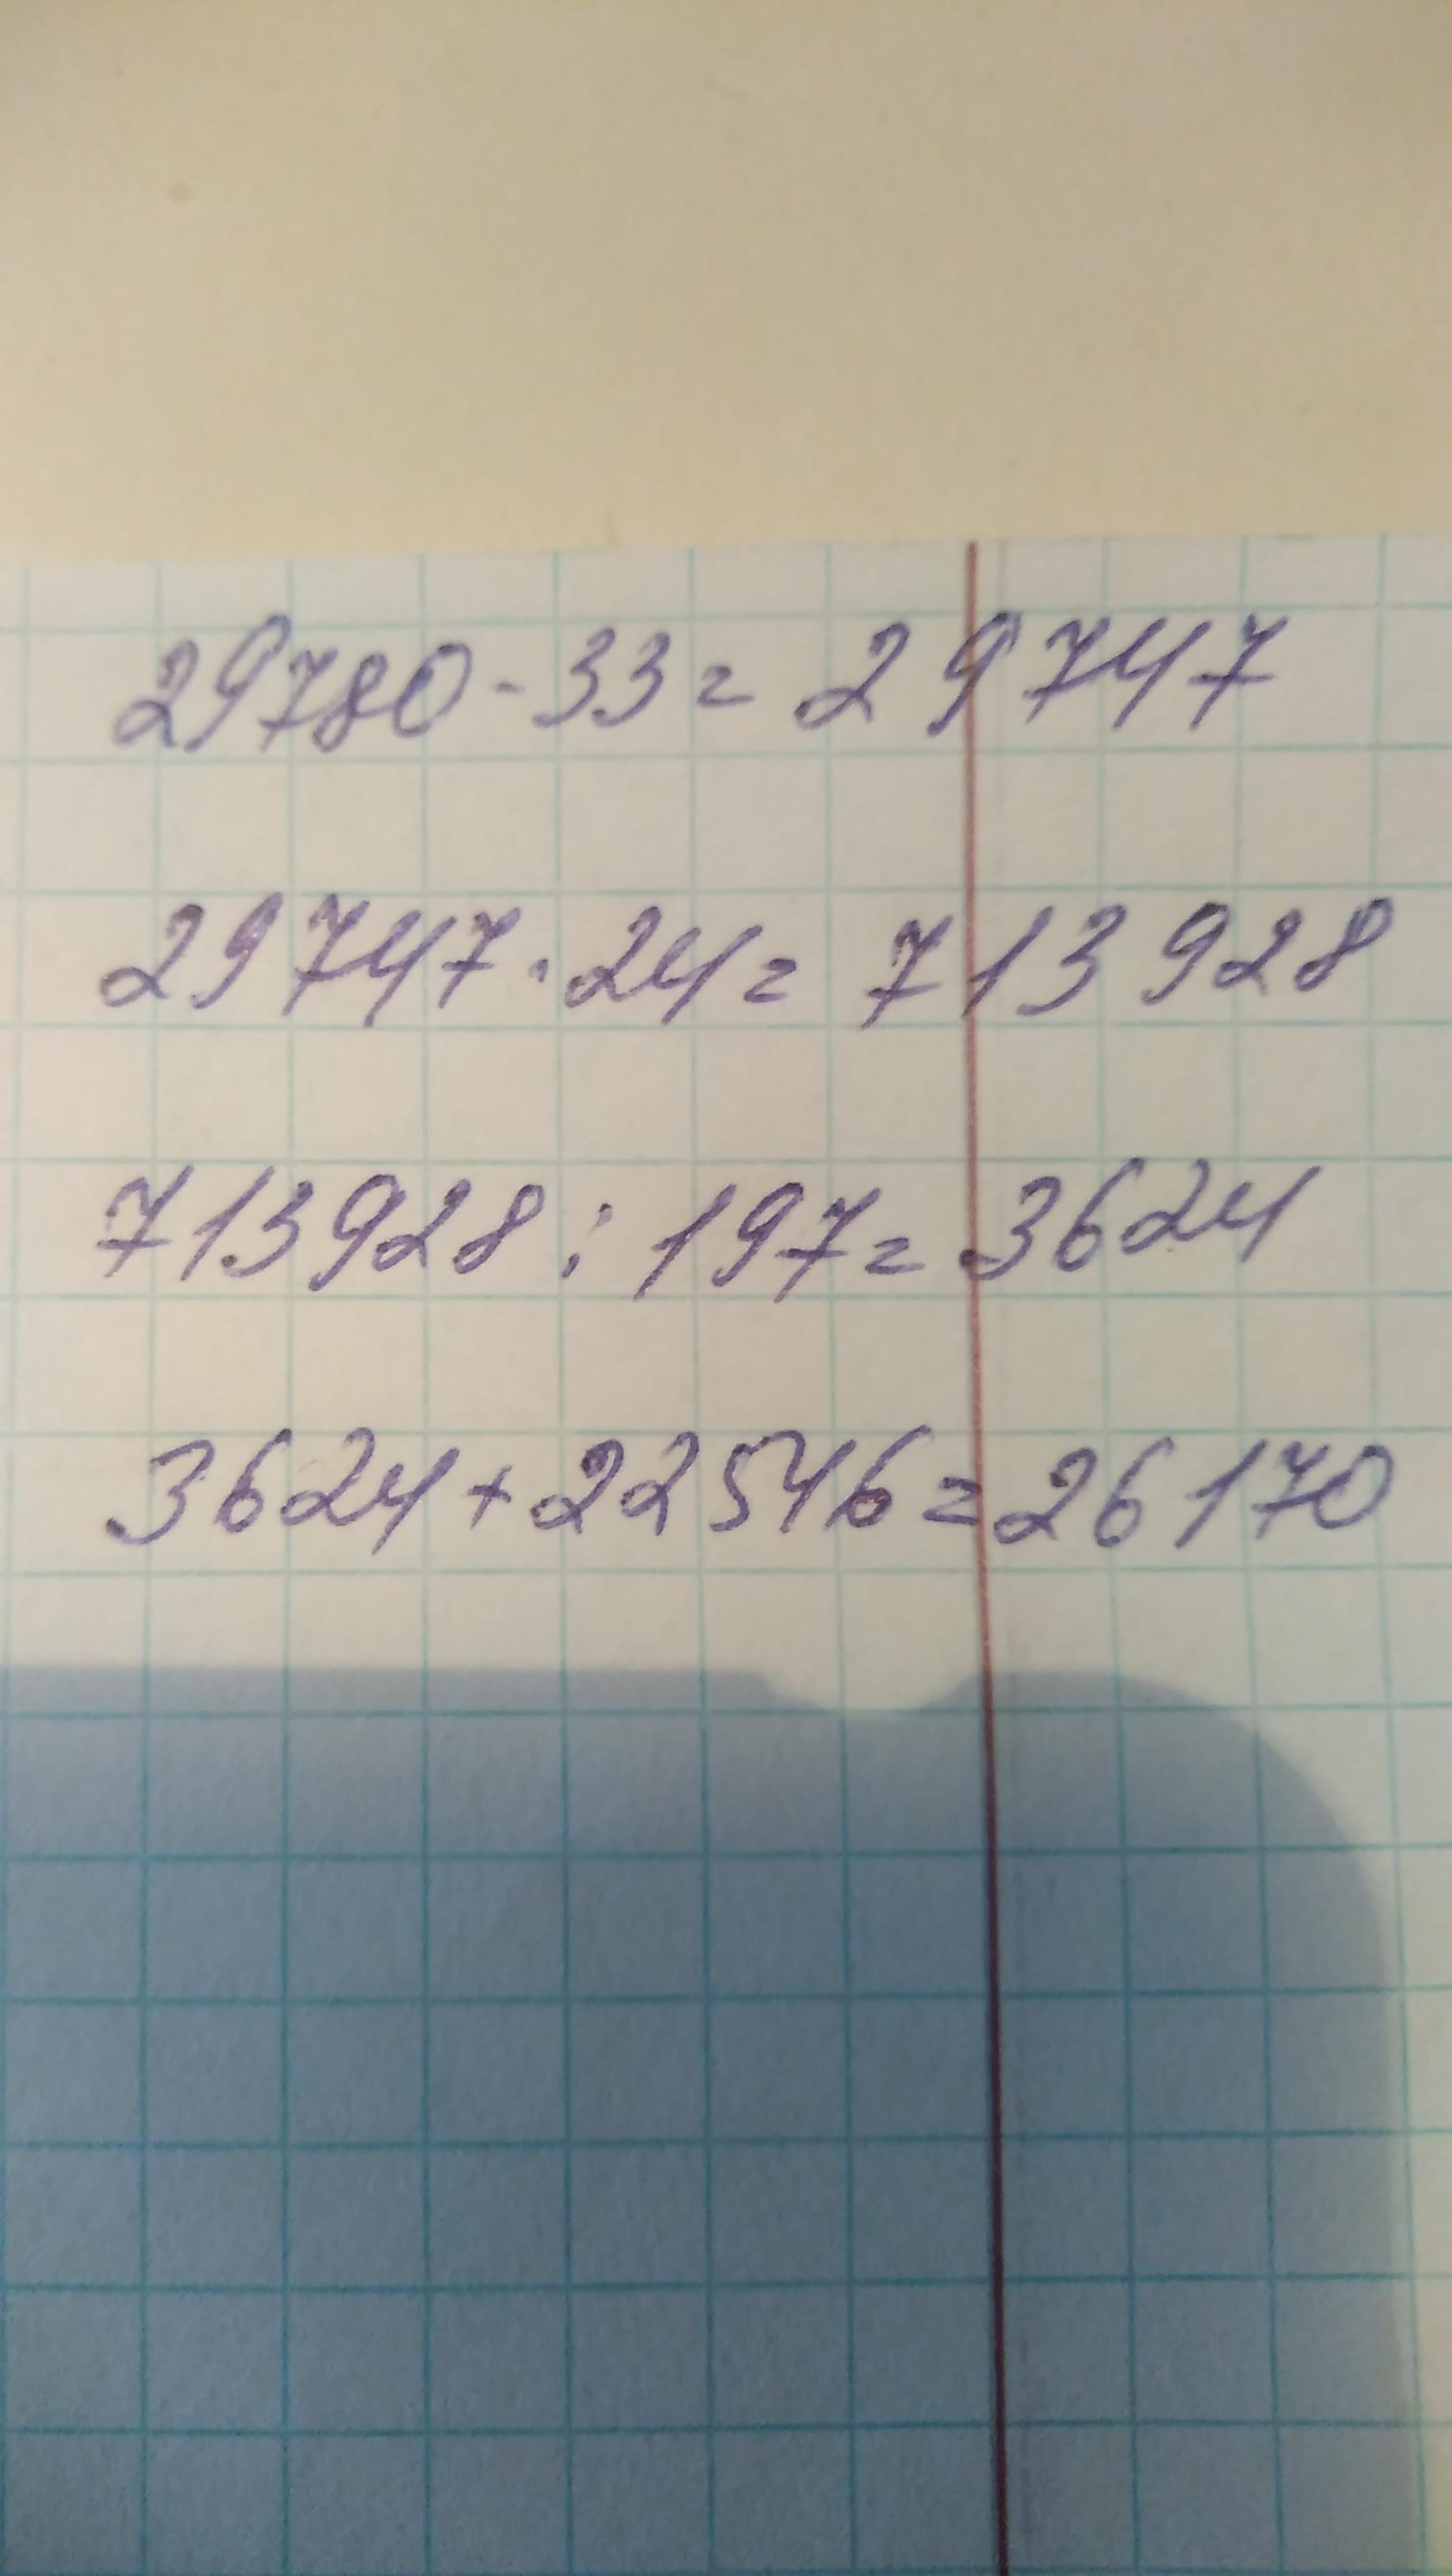 29780-33=29747
29747·24=713928
713928:197=3624
3624+22546=26170